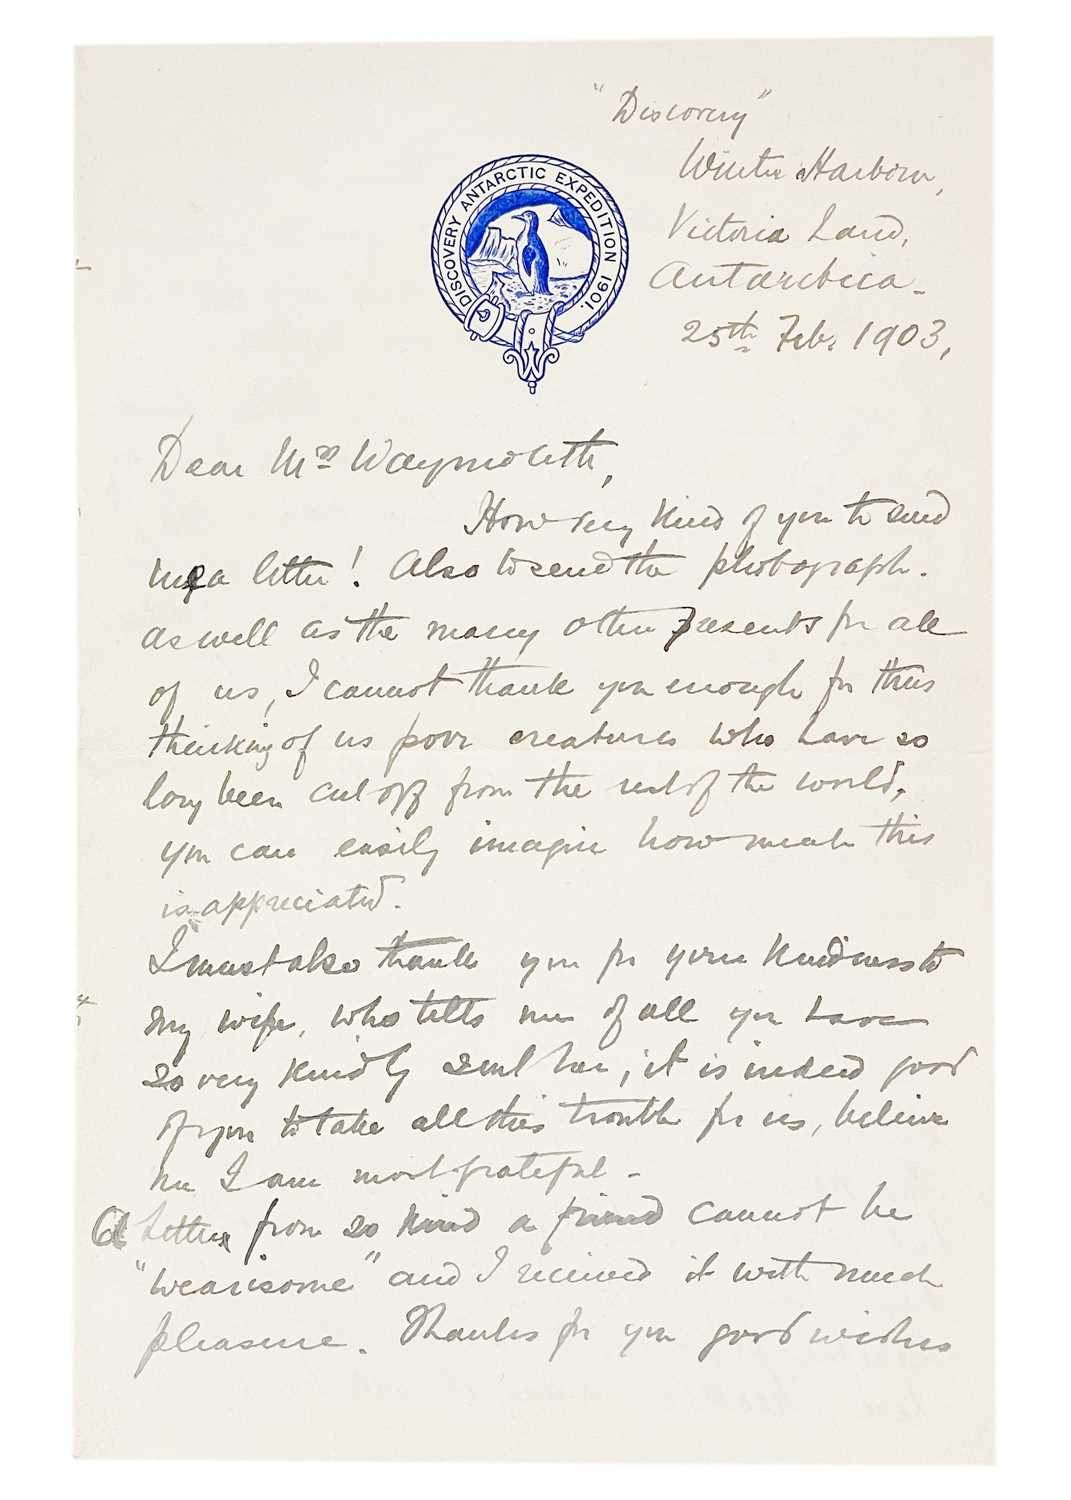 "Discovery"
Winter Harbour,
Victoria Land,
Antarctica -
25th Feb. 1903,
DISCOVERY ANTARCTIC EXPEDITION 1901.
Dear Mrs
How very kind of you to send
me a letter! Also to send the photograph.
as well as the many other presents for all
of us, I cannot thank you enough for thus
thinking of us poor creatures who have so
long been cut off from the rest of the world,
you can easily imagine how much this
is appreciated.
I must also thank you for your kindness to
my wife, who tells me of all you have
so very kindly sent her, it is indeed good
of you to take all this trouble for us, believe
me I am most grateful -
A Letter from so kind a friend cannot be
"wearisome" and I received it with much
pleasure. Thanks for you good wishes